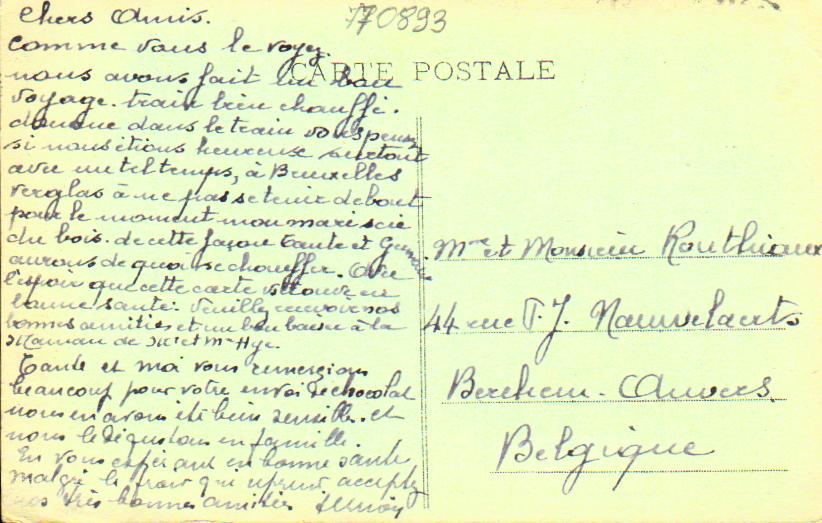 770893
CARTE POSTALE
Chers Amis.
comme vous le voyez
nous avons fait un bon
voyage. train bien chauffé.
dans le train vous pensez
si nous étions heureuse surtout
avec un tel temps, à Bruxelles
verglas à ne pas se tenir debout
pour le moment mon mari scie
du bois. de cette façon Tante et
aurons de quoi se chauffer.
l'espoir que cette carte vs trouve en
bonne santé. Veuillez recevoir nos
bonnes amitiés et un bon baiser à la
Maman de
Tante et moi vous remercions
beaucoup pour votre envoi de chocolat
nous en avons été bien sensible. et
nous le dégustons en famille.
En vous espérant en bonne santé
malgré le froid qui reprend acceptez
nos très bonnes amitiés
Mme et Monsieur Routhiaux
44 rue T. J. Nauwelaerts
Berchem - Anvers.
Belgique